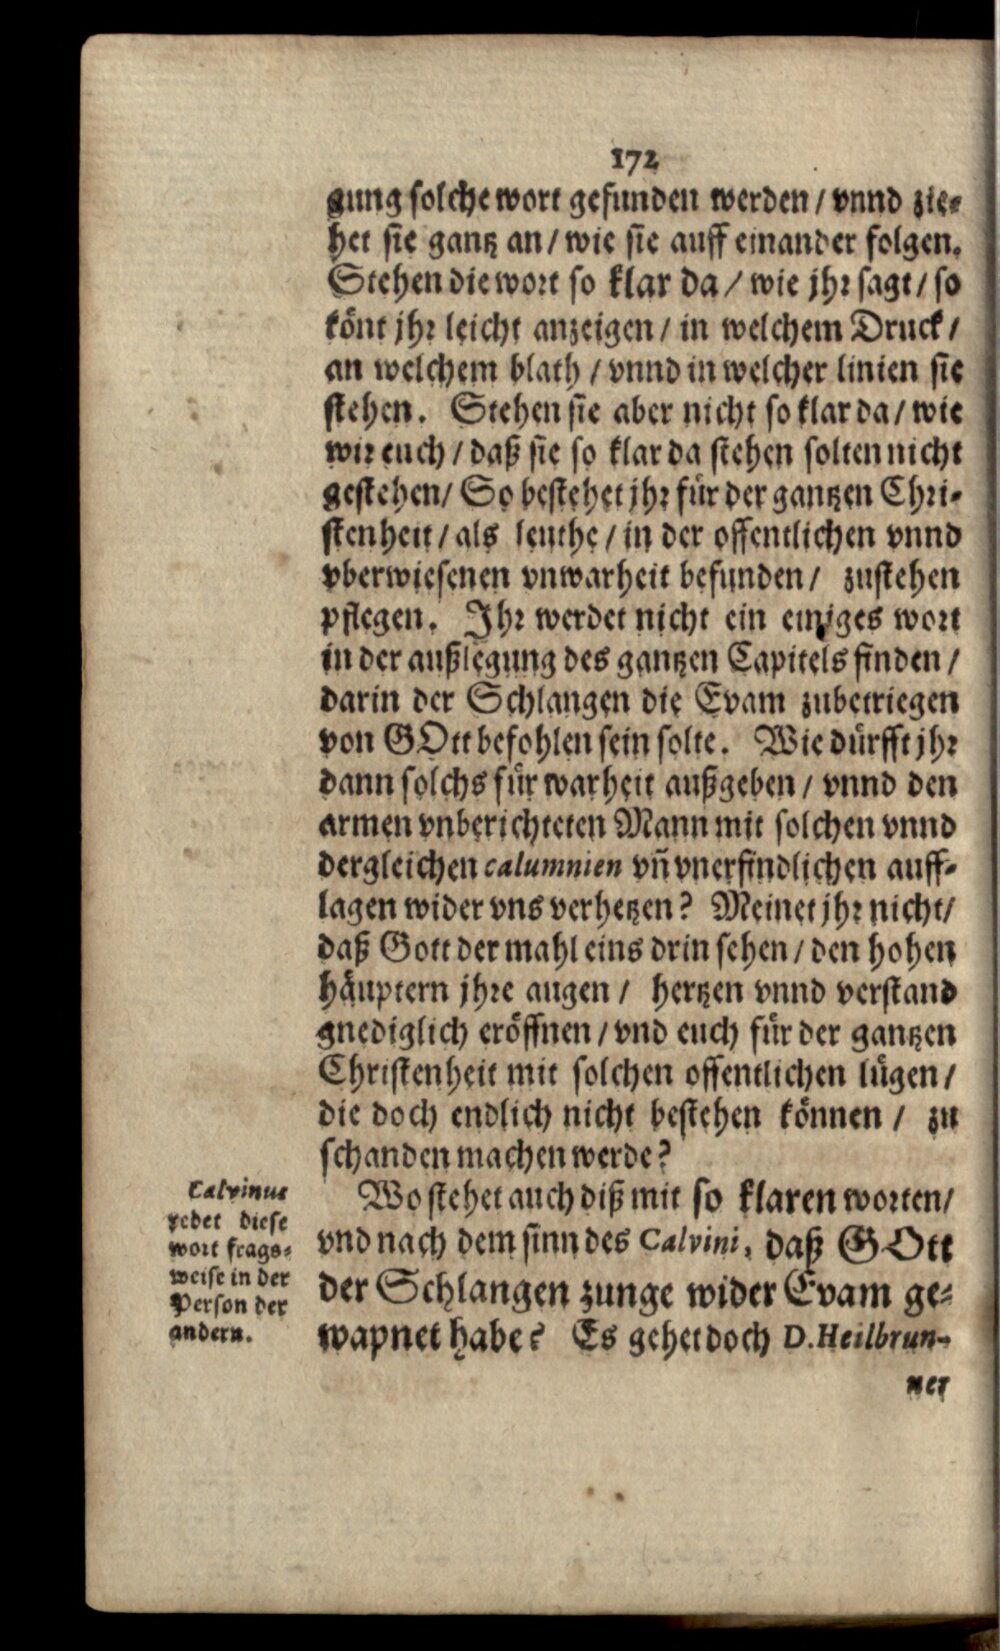 172
gung solche wort gefunden werden / vnnd zie-
het sie gantz an / wie sie auff einander folgen.
Stehen die wort so klar da / wie jhr sagt / so
könt jhr leicht anzeigen / in welchem Druck /
an welchem blath / vnnd in welcher linien sie
stehen. Stehen sie aber nicht so klar da / wie
wir euch / daß sie so klar da stehen solten nicht
gestehen / So bestehet jhr für der gantzen Chri-
stenheit / als leuthe / in der offentlichen vnnd
vberwiesenen vnwarheit befunden / zustehen
pflegen. Jhr werdet nicht ein einiges wort
in der außlegung des gantzen Capitels finden /
darin der Schlangen die Evam zubetriegen
von GOtt befohlen sein solte. Wie dürfft jhr
dann solchs für warheit außgeben / vnnd den
armen vnberichteten Mann mit solchen vnnd
dergleichen calumnien vñ vnerfindlichen auff-
lagen wider vns verhetzen? Meinet jhr nicht /
daß Gott der mahl eins drin sehen / den hohen
häuptern jhre augen / hertzen vnnd verstand
gnediglich eröffnen / vnd euch für der gantzen
Christenheit mit solchen offentlichen lügen /
die doch endlich nicht bestehen können / zu
schanden machen werde?
Wo stehet auch diß mit so klaren worten /
vnd nach dem sinn des Calvini, daß GOtt
der Schlangen zunge wider Evam ge-
wapnet habe? Es gehet doch D. Heilbrun-
ner
Calvinus
redet diese
wort frags-
weise in der
Person der
andern.